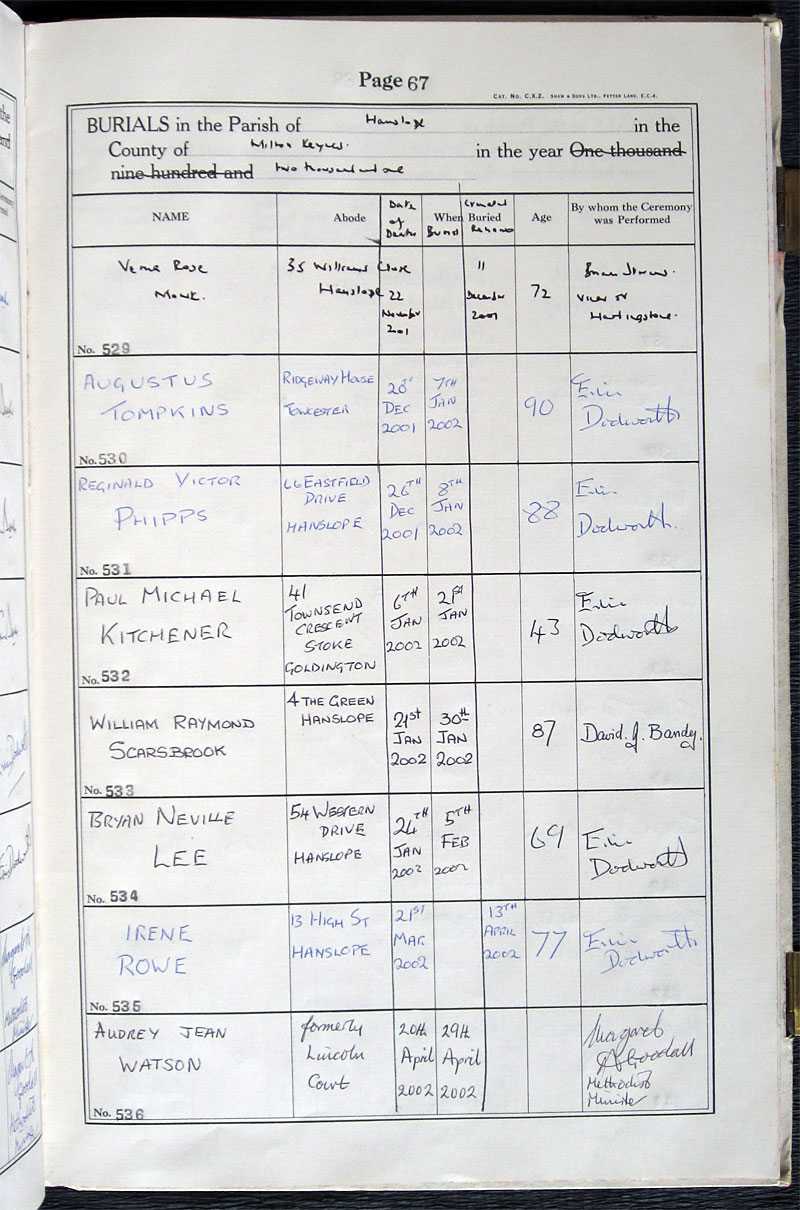 Page 67
CAT. No. C.X.2. SHAW & SONS LTD., FETTER LANE, E.C.4.
BURIALS in the Parish of Hanslope in the
County of Milton Keynes. in the year One thousand
nine hundred and two thousand and one
NAME Abode Date of Death When Buried Buried Cremated Remains Age By whom the Ceremony was Performed
Verna Rose Monk.
35 Williams Close Hanslope
22 November 2001
11 December 2001
72
Vicar of
No. 529
AUGUSTUS TOMPKINS
RIDGEWAY HOUSE TOWCESTER
DEC 2001
7TH JAN 2002
90
Eric Dodworth
No. 530
REGINALD VICTOR PHIPPS
66 EASTFIELD DRIVE HANSLOPE
26TH DEC 2001
8TH JAN 2002
88
Eric Dodworth.
No. 531
PAUL MICHAEL KITCHENER
41 TOWNSEND CRESCENT STOKE GOLDINGTON
6TH JAN 2002
21ST JAN 2002
43
Eric Dodworth
No. 532
WILLIAM RAYMOND SCARSBROOK
4 THE GREEN HANSLOPE
21st JAN 2002
30th JAN 2002
87
David. J. Bandy.
No. 533
BRYAN NEVILLE LEE
54 WESTERN DRIVE HANSLOPE
24TH JAN 2002
5TH FEB 2002
69
Eric Dodworth
No. 534
IRENE ROWE
13 HIGH ST HANSLOPE
21ST MAR 2002
13TH APRIL 2002
77
Eric Dodworth
No. 535
AUDREY JEAN WATSON
formerly Lincoln Court
20th April 2002
29th April 2002
Margaret A Goodall
Methodist Minister
No. 536